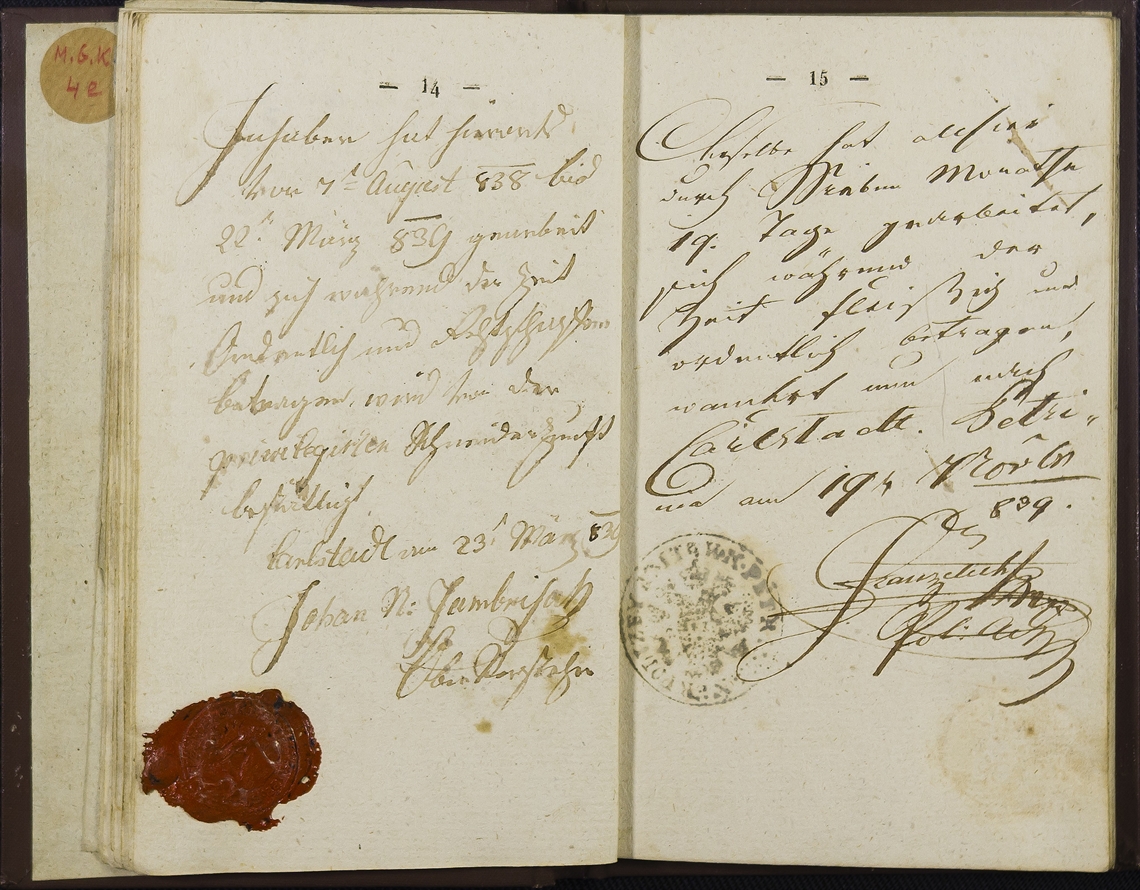 M. G. K.
4 e
— 14 —
Inhaber hat hierorts
von 7t August 838 bis
22t März 839 gearbeit
und sich während der Zeit
Ordentlich und Rechtschaffen
betragen, wird von der
privilegirten Schneider Zunft
bestättigt.
Karlstadt am 23t März 839
Johan N:
Ober Vorsteher
— 15 —
Derselbe hat allhier
durch Sieben Monathe
19. Tage gearbeitet,
sich während der
Zeit fleißig und
ordentlich betragen,
wandert nun nach
Carlstadt. Petri-
nia am 19t 9ber
839.